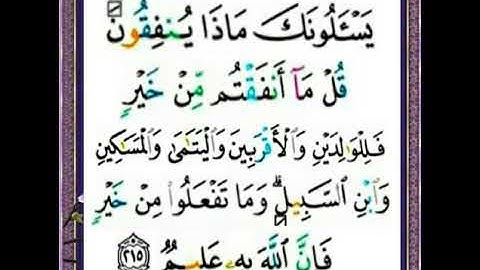 يَسْـَٔلُونَكَ مَاذَا يُنفِقُونَۖ
قُلْ مَآ أَنفَقْتُم مِّنْ خَيْرٍ
فَلِلْوَٰلِدَيْنِ وَالْأَقْرَبِينَ وَالْيَتَٰمَىٰ وَالْمَسَٰكِينِ
وَابْنِ السَّبِيلِۗ وَمَا تَفْعَلُوا۟ مِنْ خَيْرٍ
فَإِنَّ اللَّهَ بِهِۦ عَلِيمٌ ٢١٥